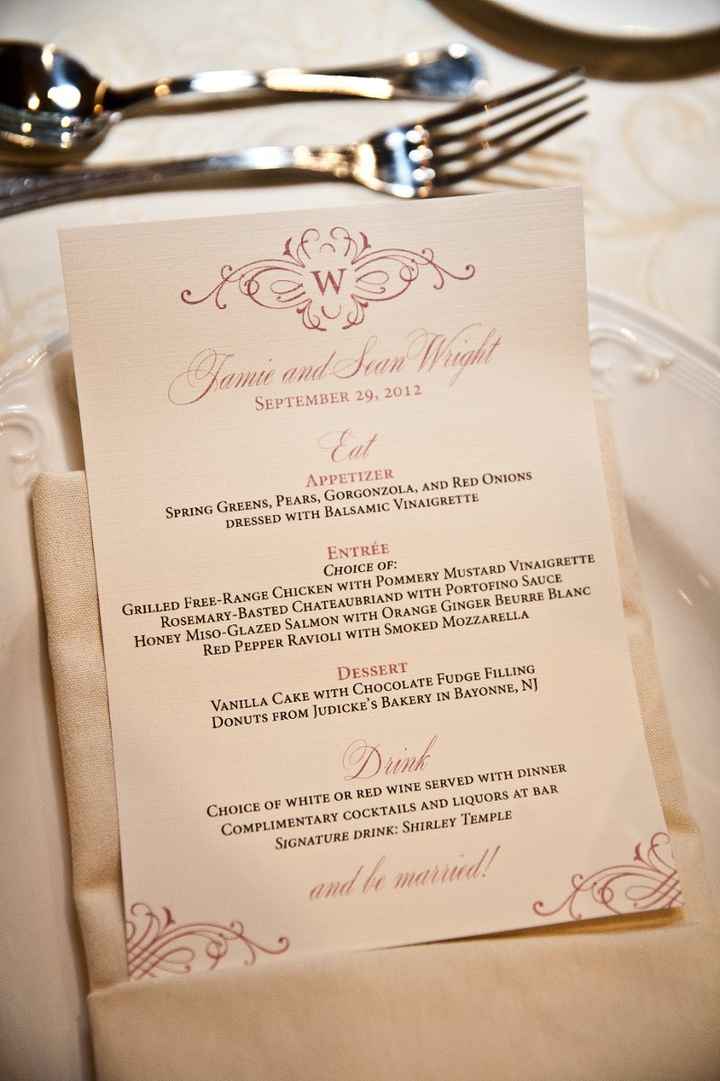 W
Jamie and Sean Wright
September 29, 2012
Eat
Appetizer
Spring Greens, Pears, Gorgonzola, and Red Onions
dressed with Balsamic Vinaigrette
Entrée
Choice of:
Grilled Free-Range Chicken with Pommery Mustard Vinaigrette
Rosemary-Basted Chateaubriand with Portofino Sauce
Honey Miso-Glazed Salmon with Orange Ginger Beurre Blanc
Red Pepper Ravioli with Smoked Mozzarella
Dessert
Vanilla Cake with Chocolate Fudge Filling
Donuts from Judicke's Bakery in Bayonne, NJ
Drink
Choice of white or red wine served with dinner
Complimentary cocktails and liquors at bar
Signature drink: Shirley Temple
and be married!